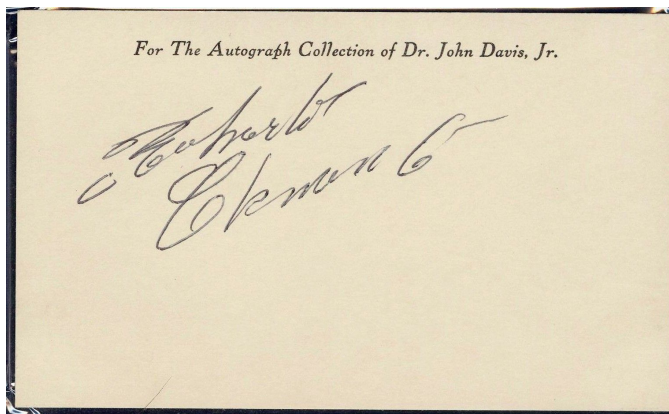 For The Autograph Collection of Dr. John Davis, Jr.
Roberto
Clemente